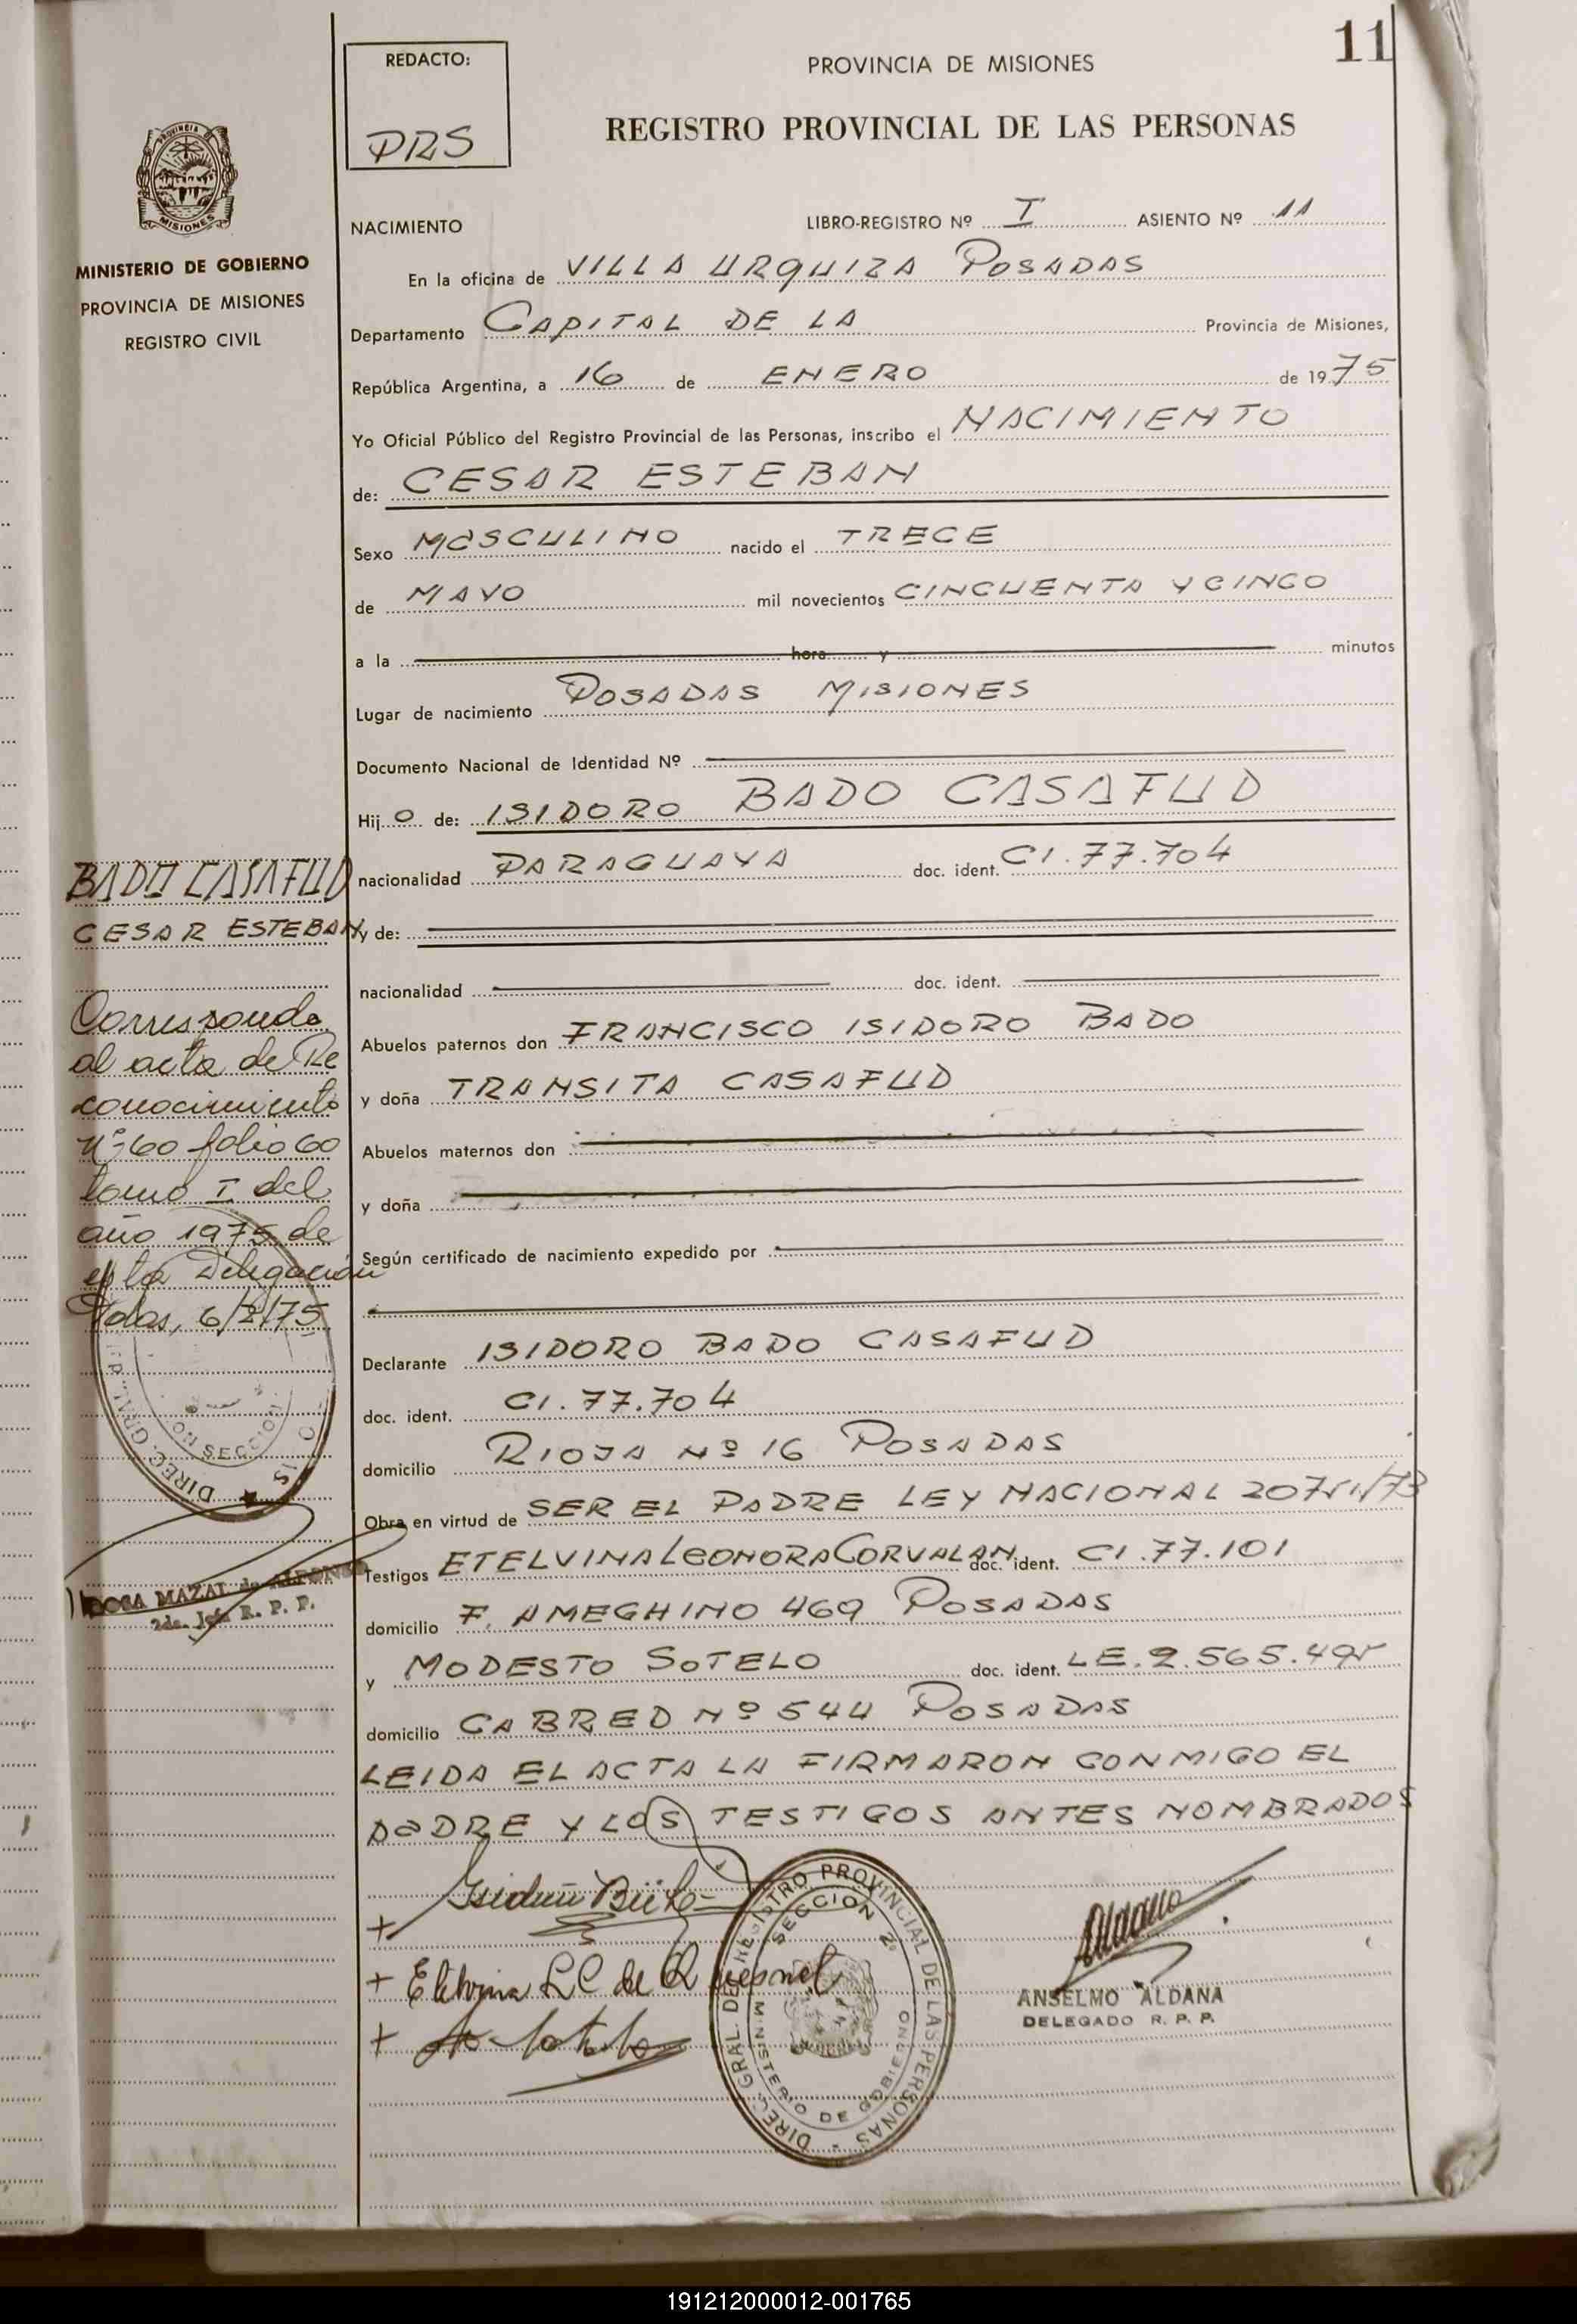 11
REDACTO:
PRS
PROVINCIA DE MISIONES
REGISTRO PROVINCIAL DE LAS PERSONAS
PROVINCIA DE
MISIONES
MINISTERIO DE GOBIERNO
PROVINCIA DE MISIONES
REGISTRO CIVIL
NACIMIENTO LIBRO-REGISTRO Nº I ASIENTO Nº 11
En la oficina de VILLA URQUIZA POSADAS
Departamento CAPITAL DE LA Provincia de Misiones,
República Argentina, a 16 de ENERO de 1975
Yo Oficial Público del Registro Provincial de las Personas, inscribo el NACIMIENTO
de: CESAR ESTEBAN
Sexo MASCULINO nacido el TRECE
de MAYO mil novecientos CINCUENTA Y CINCO
a la hora y minutos
Lugar de nacimiento POSADAS MISIONES
Documento Nacional de Identidad Nº
Hijo de: ISIDORO BADO CASAFUD
nacionalidad PARAGUAYA doc. ident. CI.77.704
y de:
nacionalidad doc. ident.
Abuelos paternos don FRANCISCO ISIDORO BADO
y doña TRANSITA CASAFUD
Abuelos maternos don
y doña
Según certificado de nacimiento expedido por
Declarante ISIDORO BADO CASAFUD
doc. ident. CI.77.704
domicilio RIOJA Nº 16 POSADAS
Obra en virtud de SER EL PADRE LEY NACIONAL
Testigos ETELVINA LEONORA CORVALAN doc. ident. CI.77.101
domicilio F. AMEGHINO 469 POSADAS
y MODESTO SOTELO doc. ident. LE.2.565.495
domicilio CABRED Nº 544 POSADAS
LEIDA EL ACTA LA FIRMARON CONMIGO EL
PADRE Y LOS TESTIGOS ANTES NOMBRADOS
BADO CASAFUD
CESAR ESTEBAN
Corresponde
al acta de Re
conocimiento
Nº 60 folio 60
tomo I del
año 1975 de
esta Delegación
Pdas, 6/2/75
DIREC. GRAL.
SECCION
ROSA MAZAL de ALFONSO
2da. Jefa R. P. P.
+ Etelvina L C de
+
DIREC. GRAL. DEL REGISTRO PROVINCIAL DE LAS PERSONAS
SECCION 2ª
MINISTERIO DE GOBIERNO
ANSELMO ALDANA
DELEGADO R. P. P.
191212000012-001765